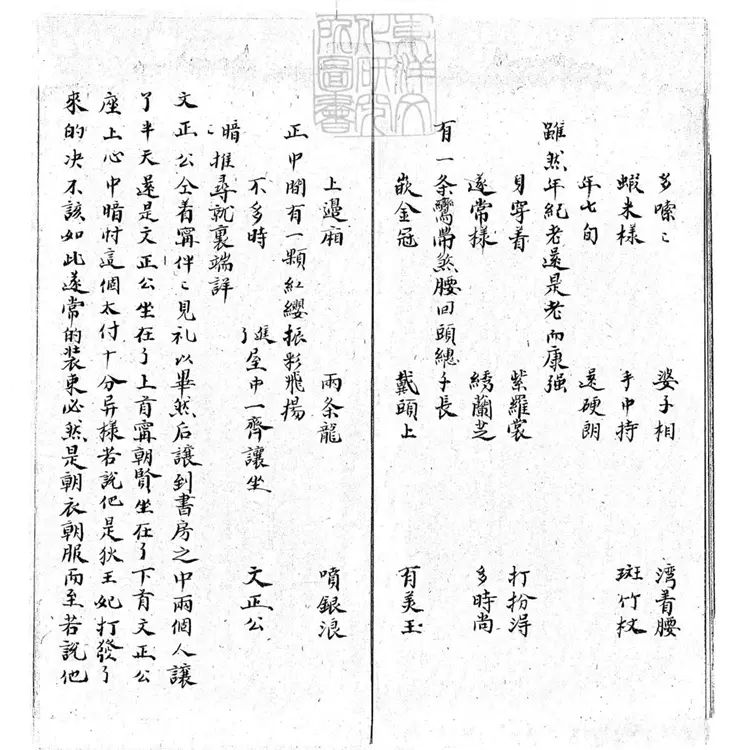 東洋文
化研究
所圖書
多嗦〻　婆子相　湾着腰
蝦米樣　手中持　斑竹杖
年七旬　還硬朗
雖然年紀老還是老而康强
身穿着　紫羅裳　打扮得
遂常樣　綉蘭芝　多時尚
有一条鸞帶煞腰回頭總子長
嵌金冠　戴頭上　有美玉
上邉廂　兩条龍　噴銀浪
正中間有一顆紅纓振彩飛揚
不多時　進了屋中一齊讓坐　文正公
〻暗推尋就裏端詳
文正公仝着甯伴〻見礼以畢然后讓到書房之中兩個人讓
了半天還是文正公坐在了上首甯朝賢坐在了下首文正公
座上心中暗忖這個太付十分异樣若說他是狄王妃打發了
來的决不該如此遂常的装束必然是朝衣朝服而至若說他